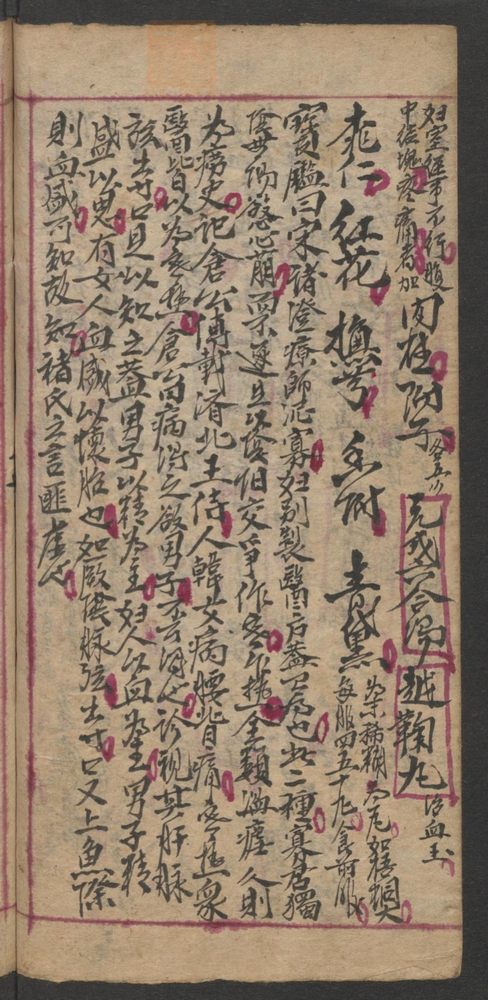 妇室經事不行腹
中結塊疼痛者加
肉桂附子各五分
元戎六合湯 越鞠丸 治血生
桃仁 紅花 撫芎 香附 青黛
為末 稀糊為丸如梧桐大
每服四五十丸食前服
寶鑑曰宋褚澄療師尼寡妇别製醫方蓋有為也此二種寡居獨
陰無陽慾心萌而不遂且以陰陽交爭作寒作熱全類溫瘧久則
為癆史記倉公傳載濟北王侍人韓女病腰背痛寒熱衆
醫皆以為寒熱倉公曰病得之欲男子不可得也診視其肝脉
弦出寸口是以知之蓋男子以精為主妇人以血為主男子精
盛以思室女人血盛以懷胎也如厥陰脉弦出寸口又上魚際
則血盛可知故知褚氏之言匪虛也